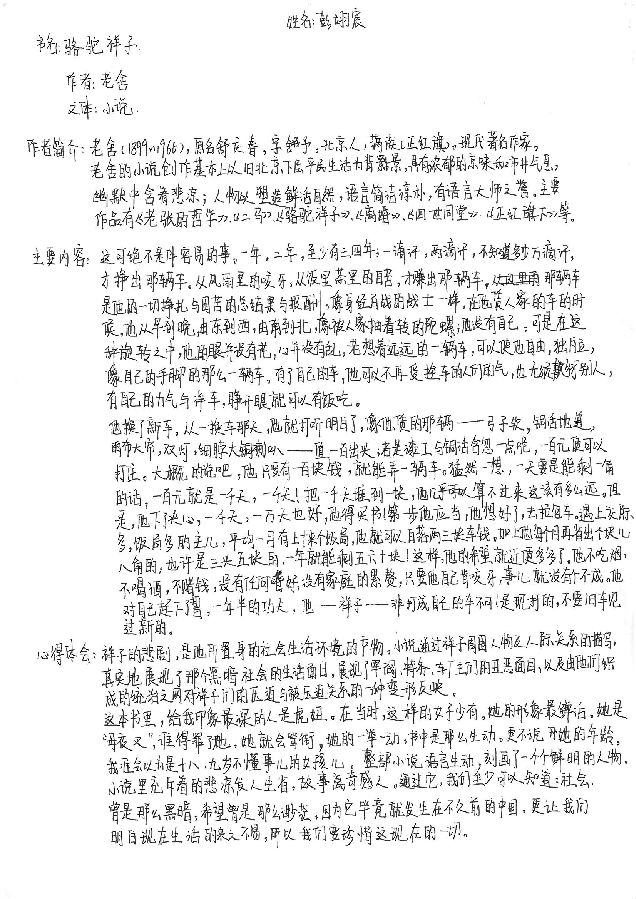 姓名:彭翊宸
书名:骆驼祥子
作者:老舍
文体:小说
作者简介:老舍(1899-1966),原名舒庆春,字舍予,北京人,满族(正红旗)。现代著名作家。
老舍的小说创作基本上以旧北京下层平民生活为背景,具有浓郁的京味和市井气息,
幽默中含着悲凉;人物以塑造鲜活自然,语言简洁淳朴,有语言大师之誉。主要
作品有《老张的哲学》、《二马》、《骆驼祥子》、《离婚》、《四世同堂》、《正红旗下》等。
主要内容:这可绝不是件容易的事。一年,二年,至少有三四年;一滴汗,两滴汗,不知道多少万滴汗,
才挣出那辆车。从风雨里的咬牙,从饭里茶里的自苦,才赚出那辆车。那辆车
是他的一切挣扎与困苦的总结果与报酬,像身经百战的战士一样,在他赁人家的车的时
候,他从早到晚,由东到西,由南到北,像被人家抽着转的陀螺,他没有自己。可是在这
种旋转之中,他的眼并没有花,心并没有乱,老想着远远的一辆车,可以使他自由,独立,
像自己的手脚的那么一辆车。有了自己的车,他可以不再受拴车的人们的气,也无须敷衍别人,
有自己的力气与洋车,睁开眼就可以有饭吃。
他换了新车,从一换车那天,他就打听明白了,像他赁的那辆——弓子软,铜活地道,
雨布大帘,双灯,细脖大铜喇叭——值一百出头,若是漆工与铜活含忽一点呢,一百元便可以
打住。大概的说吧,他只要有一百块钱,就能弄一辆车。猛然一想,一天要是能剩一角
的话,一百元就是一千天,一千天!把一千天堆到一块,他几乎算不过来这该有多么远。但
是,他下了决心,一千天,一万天也好,他得买车!第一步他应当,他想好了,去拉包车。遇上交际
多,饭局多的主儿,平均一月有上十来个饭局,他就可以白落两三块车钱。加上他每月再省出个块儿
八角的,也许是三头五块的,一年就能剩五六十块!这样,他的希望就近便多多了。他不吃烟,
不喝酒,不赌钱,没有任何嗜好,没有家庭的累赘,只要他自己肯咬牙,事儿就没有个不成。他
对自己起下了誓,一年半的功夫,他——祥子——非打成自己的车不可!是现打的,不要旧车见
过新的。
心得体会:祥子的悲剧,是他所置身的社会生活环境的产物。小说通过祥子周围人物及人际关系的描写,
真实地展现了那个黑暗社会的生活面目,展现了军阀、特务、车厂主们的丑恶面目,以及由他们织
成的统治之网对祥子们的压迫与被压迫关系的一种变形反映。
这本书里,给我印象最深的人是虎妞。在当时,这样的女子少有。她的形象最鲜活。她是
“母夜叉”,谁得罪了她,她就会骂街。她的一举一动,书中是那么生动。要不说开她的年龄,
我准会以为是十八、九岁不懂事儿的女孩儿。整部小说语言生动,刻画了一个个鲜明的人物。
小说里充斥着的悲凉发人生省,故事离奇感人。通过它,我们至少可以知道:社会
曾是那么黑暗,希望曾是那么渺茫,因为它毕竟就发生在不久前的中国,更让我们
明白现在生活的来之不易,所以我们要珍惜这现在的一切。